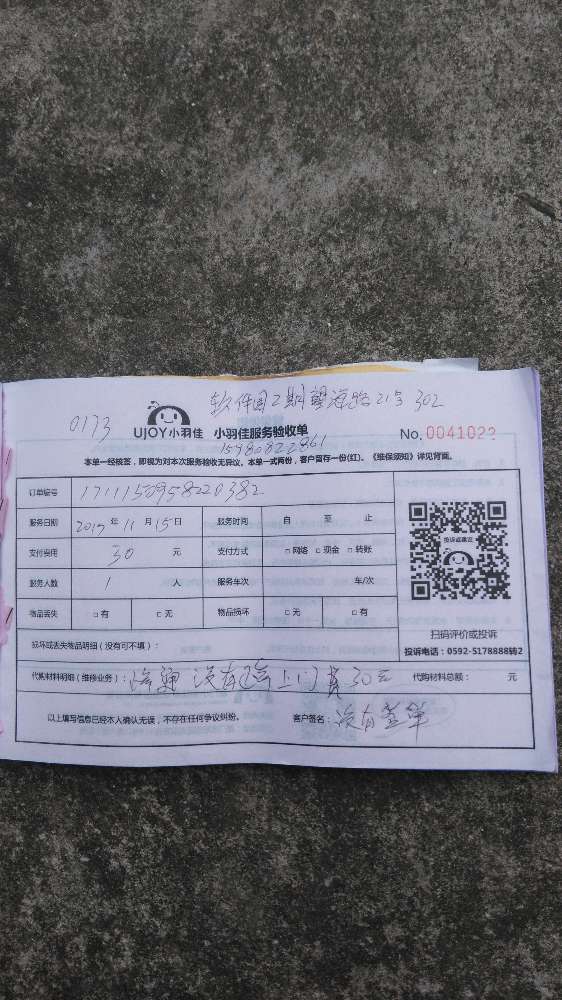 软件园2期望海路21号302
0173
UJOY小羽佳 小羽佳服务验收单 No. 0041022
15980822861
本单一经核签，即视为对本次服务验收无异议。本单一式两份，客户留存一份(红)。《维保须知》详见背面。
订单编号 1711150958220382
服务日期 2017年11月15日 服务时间 自 至 止
支付费用 30 元 支付方式 □网络 □现金 □转账
服务人数 1 人 服务车次 车/次
物品丢失 □有 □无 物品损坏 □无 □有
投诉或建议
扫码评价或投诉
投诉电话：0592-5178888转2
损坏或丢失物品明细（没有可不填）：
代购材料明细（维修业务）： 没有 上门费30元 代购材料总额： 元
以上填写信息已经本人确认无误，不存在任何争议纠纷。 客户签名： 没有签单